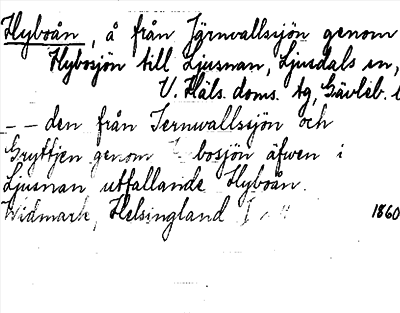 Hyboån, å från Järnvallssjön genom
Hybosjön till Ljusnan, Ljusdals sn,
V. Häls. doms. tg, Gävleb. l
– – den från Jernwallssjön och
Gryttjen genom bosjön äfwen i
Ljusnan utfallande Hyboån.
Widmark, Helsingland I 1860